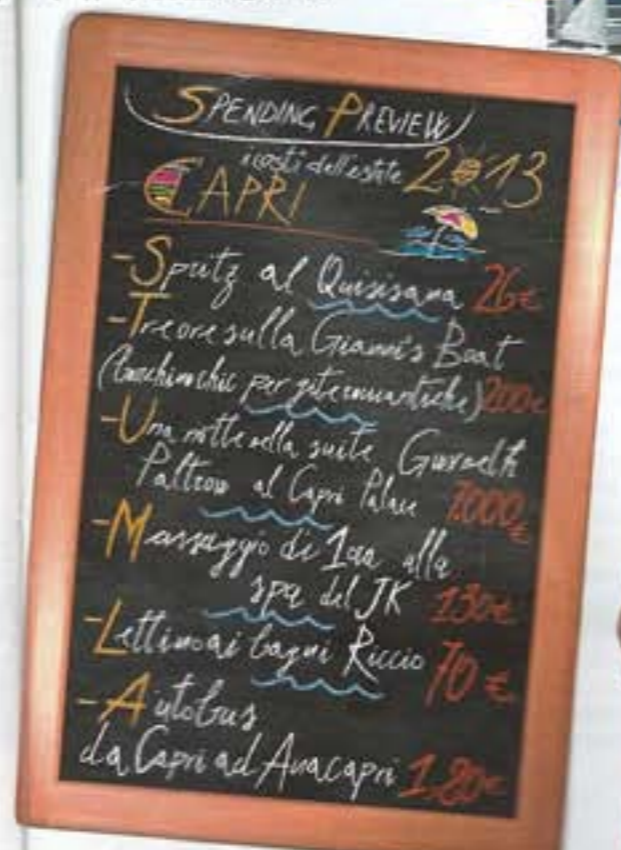 SPENDING PREVIEW
i costi dell'estate 2013
CAPRI
- Spritz al Quisisana 26€
- Tre ore sulla Gianni's Boat
(barchino chic per gite romantiche) 200€
- Una notte nella suite Gwyneth
Paltrow al Capri Palace 7.000€
- Massaggio di 1 ora alla
spa del JK 130€
- Lettino ai bagni Riccio 70€
- Autobus
da Capri ad Anacapri 1,80€